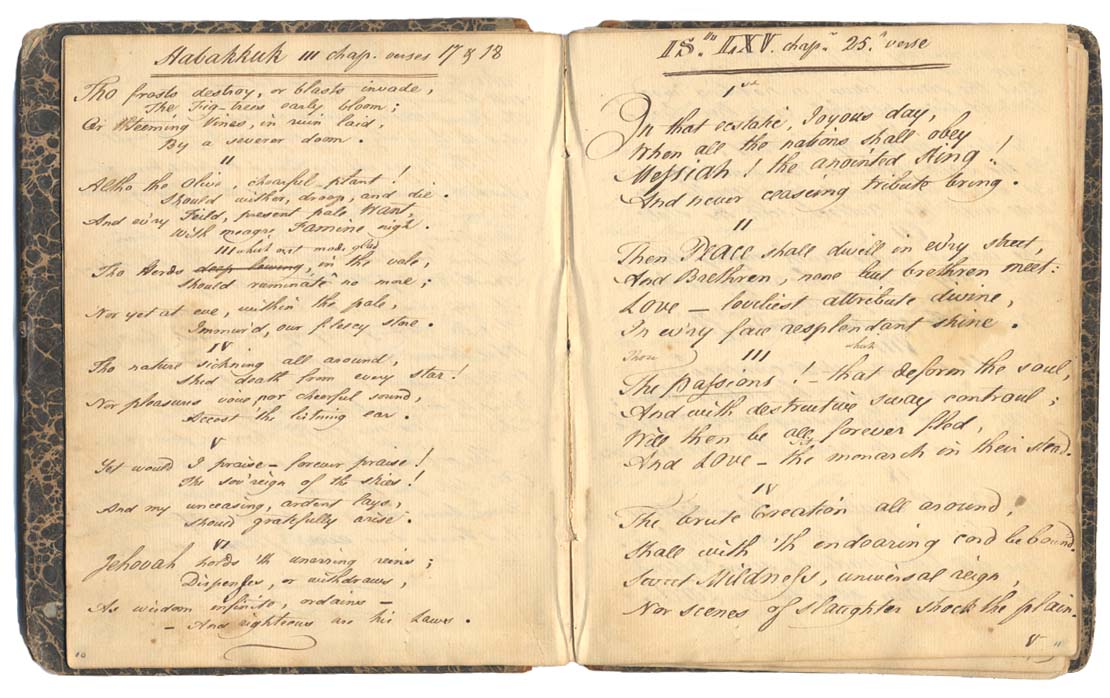 Habakkuk III chap. verses 17 & 18
Tho frosts destroy, or blasts invade,
The Fig-trees early bloom;
Or teeming Vines, in ruin laid,
By a severer doom.
II
Altho the Olive, chearful plant!
Should wither, droop, and die.
And ev'ry Feild, present pale Want,
With meagre Famine nigh.
III
which erst made glad
Tho Herds deep lowing, in the vale,
Should ruminate no more;
Nor yet at eve, within the pale,
Immur'd, our fleecy store.
IV
Tho nature sick'ning all around,
Shed death from every star!
Nor pleasures voice, nor cheerful sound,
Accost the list'ning ear.
V
Yet would I praise - forever praise!
The sov'reign of the skies!
And my unceasing, ardent lays,
Should gratefully arise.
VI
Jehovah holds th' unerring reins;
Dispenses, or withdraws,
As wisdom infinite, ordains -
- And righteous are his Laws.
10
IS.ah LXV. chap.r 25.th verse
1st
In that ecstatic, Joyous day,
When all the nations shall obey
Messiah! the anointed King!
And never ceasing tribute bring.
II
Then PEACE shall dwell in ev'ry street,
And Brethren, none but brethren meet:
LOVE - loveliest attribute divine,
In ev'ry face resplendant shine.
Those III which
The passions! - that deform the soul,
And with destructive sway controul;
Was then be all forever fled,
And LOVE - the monarch in their stead.
IV
The brute Creation all around,
Shall with 'th endearing cord be bound.
Sweet Mildness, universal reign,
Nor scenes of slaughter shock the plain.
V
11